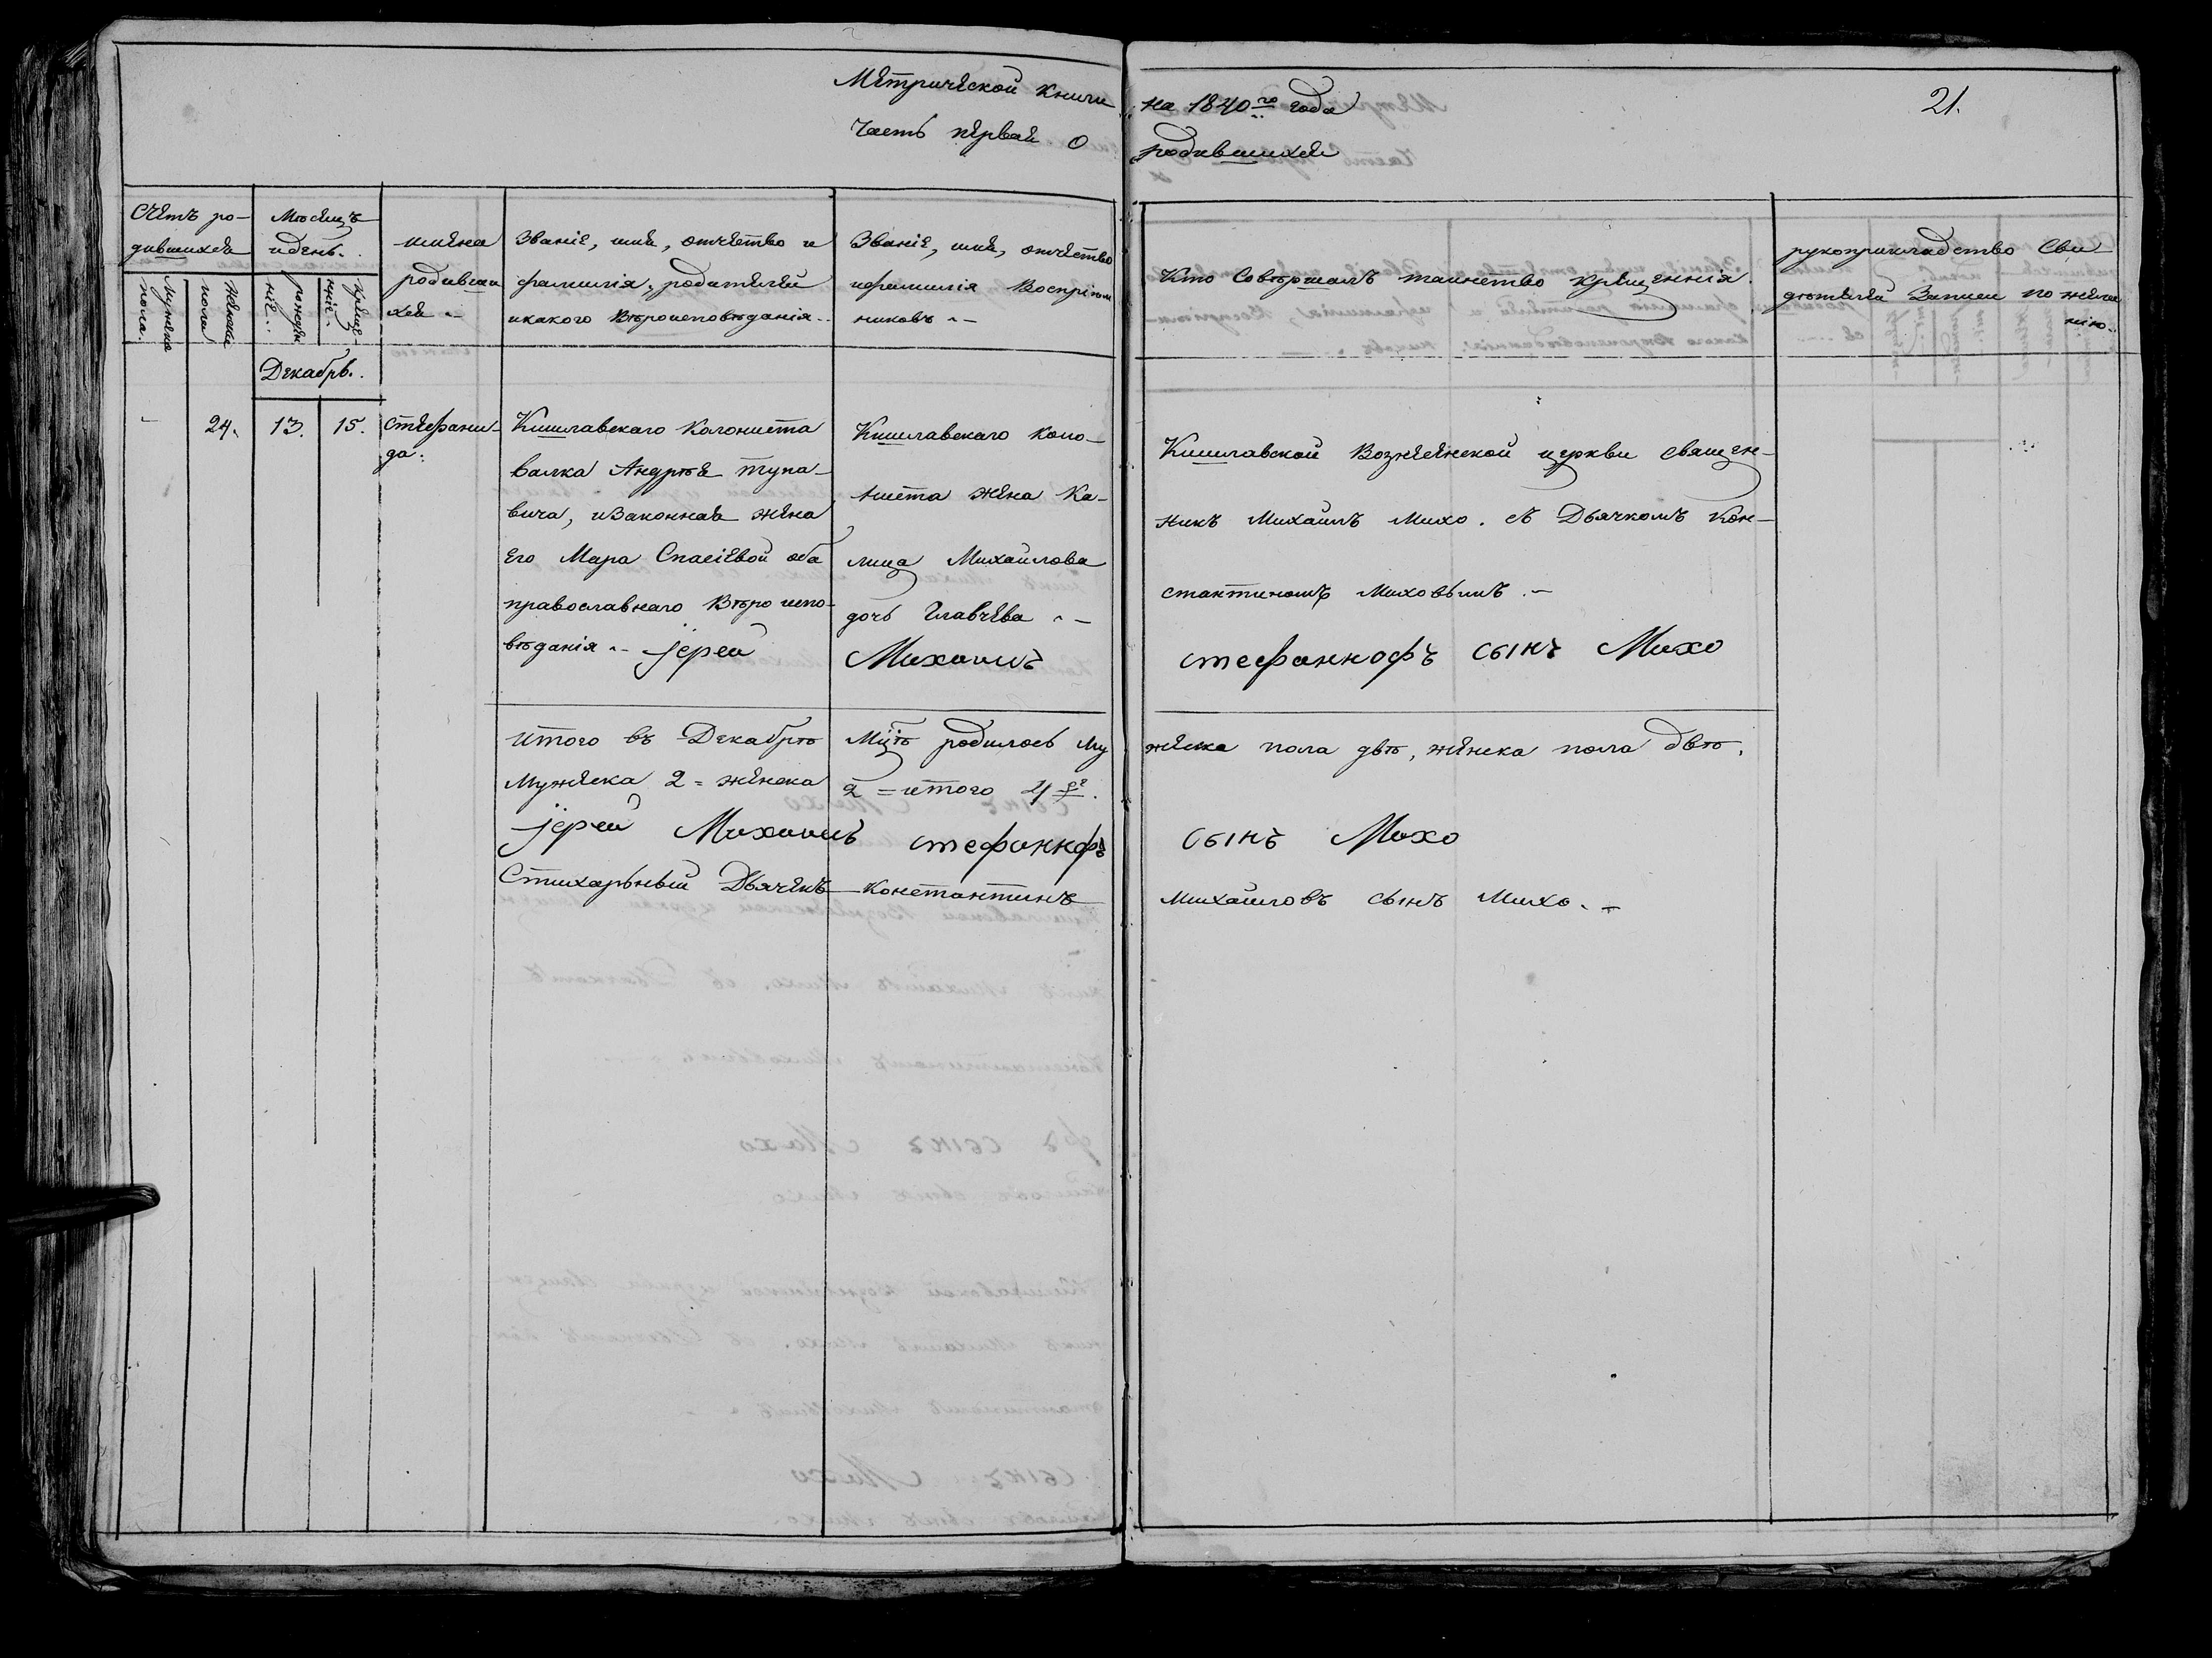 Метрической книги на 1840го года 21.
Часть первая о родившихся
Счетъ родившихся
Мужеска пола.
Женска пола
Мѣсяцъ и день.
рожденіе.
крещеніе.
имена родившихся
Званіе, имя, отчество и
фамилія, родителей
и какого Вѣроисповѣданія
Званіе, имя, отчество
и фамилія Воспріем
никовъ
Кто Совѣршалъ таинство крещеннія
рукоприкладство Сви
дѣтелей Записи по жела
нію
Декабрь.
24. 13. 15. Стефани
да:
Кишлавскаго Колониста
Валка Андрѣя тупа-
вича, и Законная жена
Его Мара Спасіевой оба
православнаго Вѣро испо-
вѣданія іерей
Кишлавскаго Коло-
ниста жена Ка-
лица Михайлова
дочь Главчева
Михаилъ
Кишлавской Вознесенской церкви священ-
никъ Михаилъ Михо. съ Дьячкомъ Кон-
стантиномъ Миховымъ.
стефанкофъ сынъ Михо
Итого въ Декабрѣ Мцѣ родилось му жеска пола двѣ, женска пола двѣ.
Мужеска 2 = женска 2 = итого 4
іерей Михаилъ стефанкофъ сынъ Михо
Стихарьный Дьячекъ Константинъ Михайловъ сынъ Михо.